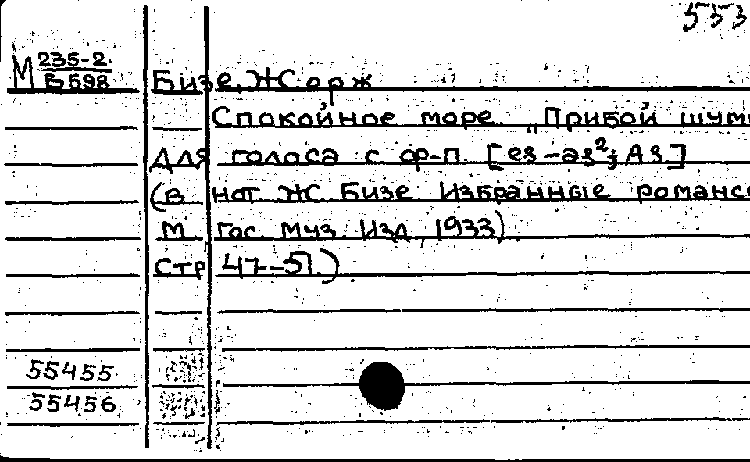 553
М 235-2
Б 598
Бизе, Жорж
Спокойное море „Прибой шум
для голоса с ф-п. [es-as²; As]
(в нот Ж Бизе Избранные романс
М Гос Муз Изд, 1933)
стр 47-51.)
55455
55456